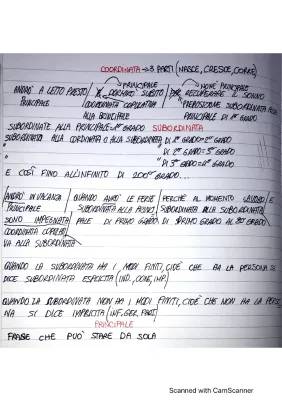 COORDINATA → 3 PARTI (NASCE, CRESCE, CORRE)
PRINCIPALE NOME PRINCIPALE
ANDRÒ A LETTO PRESTO / E DORMIRÒ SUBITO / PER RECUPERARE IL SONNO
PRINCIPALE COORDINATA COPULATIVA PROPOSIZIONE SUBORDINATA ALLA
ALLA PRINCIPALE PRINCIPALE DI 1° GRADO
SUBORDINATE ALLA PRINCIPALE = 1° GRADO SUBORDINATA
SUBORDINATA ALLA CORDINATA O ALLA SUBORDINATA DI 1° GRADO = 2° GRADO
" DI 2° GRADO = 3° GRADO
" DI 3° GRADO = 4° GRADO
E COSÌ FINO ALL'INFINITO DI 200° GRADO....
ANDRÒ IN VACANZA / QUANDO AVRÒ LE FERIE / PERCHÉ AL MOMENTO LAVORO / E
PRINCIPALE SUBORDINATA ALLA PRINCI SUBORDINATA ALLA SUBORDINATA
SONO IMPEGNATA PALE DI PRIMO GRADO DI PRIMO GRADO AL 2° GRADO
COORDINATA COPULATI
VA ALLA SUBORDINATA
QUANDO LA SUBORDINATA HA I MODI FINITI, CIOÈ CHE HA LA PERSONA SI
DICE SUBORDINATA ESPLICITA (IND., CONG, IMP.)
QUANDO LA SUBORDINATA NON HA I MODI FINITI, CIOÈ CHE NON HA LA PERSO
NA SI DICE IMPLICITA (INF. GER. PART)
PRINCIPALE
FRASE CHE PUÒ STARE DA SOLA
Scanned with CamScanner